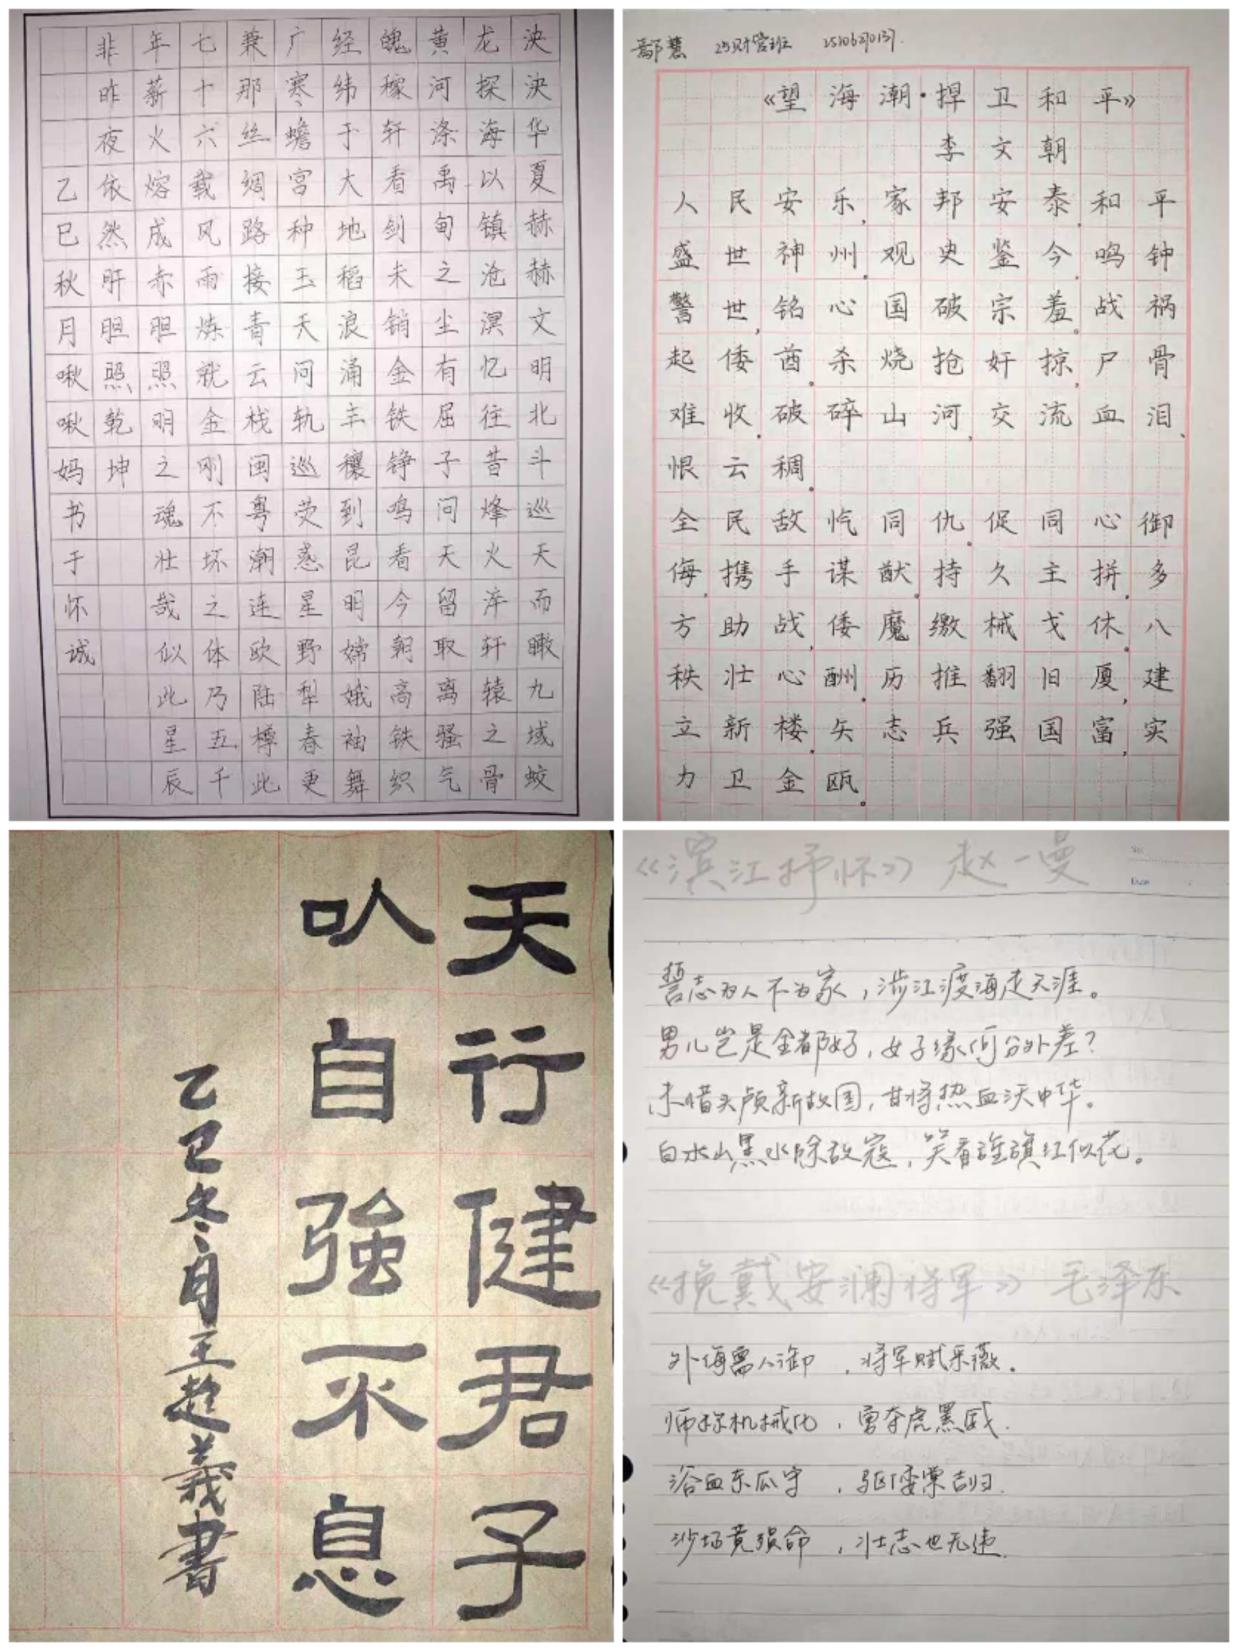 泱泱华夏赫赫文明北斗巡天而瞰九域蛟
龙探海以镇沧溟忆往昔烽火淬轩辕之骨
黄河涤禹甸之尘有屈子问天留取离骚气
魄稼轩看剑未销金铁铮鸣看今朝高铁织
经纬于大地稻浪涌丰穰到昆明嫦娥袖舞
广寒蟾宫种玉天问轨巡荧惑星野犁春更
兼那丝绸路接青云栈闽粤潮连欧陆樽此
七十六载风雨炼就金刚不坏之体乃五千
年薪火熔成赤胆照明之魂壮哉似此星辰
非昨夜依然肝胆照乾坤
乙巳秋月啾啾妈书于怀诚
鄢慧 25财管班
《望海潮·捍卫和平》
李文朝
人民安乐,家邦安泰,和平
盛世神州。观史鉴今,鸣钟
警世,铭心国破宗羞。战祸
起倭酋。杀烧抢奸掠,尸骨
难收。破碎山河,交流血泪、
恨云稠。
全民敌忾同仇。促同心御
侮,携手谋猷。持久主拼,多
方助战,倭魔缴械戈休。八
秩壮心酬。历推翻旧厦,建
立新楼。矢志兵强国富,实
力卫金瓯。
天行健君子
以自強不息
乙巳冬月王趁義書
《滨江抒怀》 赵一曼
誓志为人不为家,涉江渡海走天涯。
男儿岂是全都好,女子缘何分外差?
未惜头颅新故国,甘将热血沃中华。
白水山黑水除敌寇,笑看旌旗红似花。
《挽戴安澜将军》 毛泽东
外侮需人御,将军赋采薇。
师称机械化,勇夺虎罴威.
浴血东瓜守,驱倭棠吉归.
沙场竟殒命,壮志也无违.